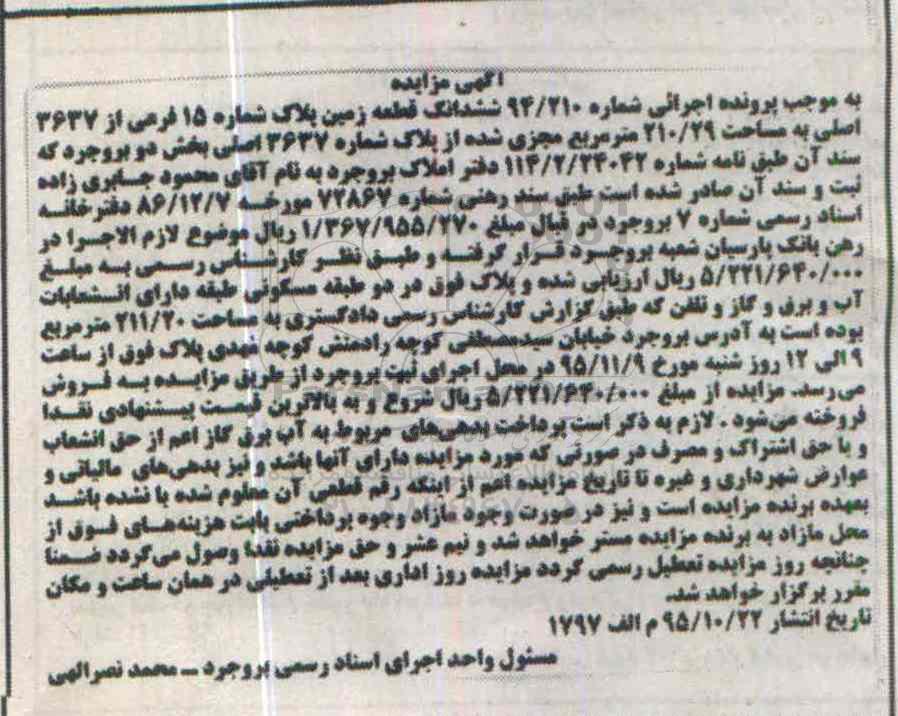 آگهی مزایده
به موجب پرونده اجرائی شماره ۹۴/۲۱۰ ششدانگ قطعه زمین پلاک شماره ۱۵ فرعی از ۳۶۳۷
اصلی به مساحت ۲۱۰/۲۹ مترمربع مجزی شده از پلاک شماره ۳۶۳۷ اصلی بخش دو بروجرد که
سند آن طبق نامه شماره ۱۱۴/۲/۲۴۰۴۲ دفتر املاک بروجرد به نام آقای محمود جابری زاده
ثبت و سند آن صادر شده است طبق سند رهنی شماره ۷۲۸۶۷ مورخه ۸۶/۱۲/۷ دفترخانه
اسناد رسمی شماره ۷ بروجرد در قبال مبلغ ۱/۳۶۷/۹۵۵/۲۷۰ ریال موضوع لازم الاجرا در
رهن بانک پارسیان شعبه بروجرد قرار گرفته و طبق نظر کارشناس رسمی به مبلغ
۵/۲۲۱/۶۴۰/۰۰۰ ریال ارزیابی شده و پلاک فوق در دو طبقه مسکونی طبقه دارای انشعابات
آب و برق و گاز و تلفن که طبق گزارش کارشناس رسمی دادگستری به مساحت ۲۱۱/۲۰ مترمربع
بوده است به آدرس بروجرد خیابان سیدمصطفی کوچه رادمنش کوچه مهدی پلاک فوق از ساعت
۹ الی ۱۲ روز شنبه مورخ ۹۵/۱۱/۹ در محل اجرای ثبت بروجرد از طریق مزایده به فروش
می‌رسد. مزایده از مبلغ ۵/۲۲۱/۶۴۰/۰۰۰ ریال شروع و به بالاترین قیمت پیشنهادی نقدا
فروخته می‌شود . لازم به ذکر است پرداخت بدهی‌های مربوط به آب برق گاز اعم از حق انشعاب
و یا حق اشتراک و مصرف در صورتی که مورد مزایده دارای آنها باشد و نیز بدهی‌های مالیاتی و
عوارض شهرداری و غیره تا تاریخ مزایده اعم از اینکه رقم قطعی آن معلوم شده یا نشده باشد
بعهده برنده مزایده است و نیز در صورت وجود مازاد وجوه پرداختی بابت هزینه‌های فوق از
محل مازاد به برنده مزایده مستر خواهد شد و نیم عشر و حق مزایده نقدا وصول می‌گردد ضمنا
چنانچه روز مزایده تعطیل رسمی گردد مزایده روز اداری بعد از تعطیلی در همان ساعت و مکان
مقرر برگزار خواهد شد.
تاریخ انتشار ۹۵/۱۰/۲۲ م الف ۱۷۹۷
مسئول واحد اجرای اسناد رسمی بروجرد ــ محمد نصرالهی